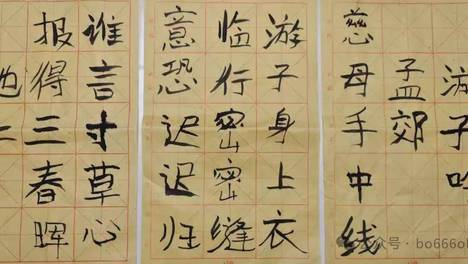 游子吟
孟郊
慈母手中线
游子身上衣
临行密密缝
意恐迟迟归
谁言寸草心
报得三春晖
公众号